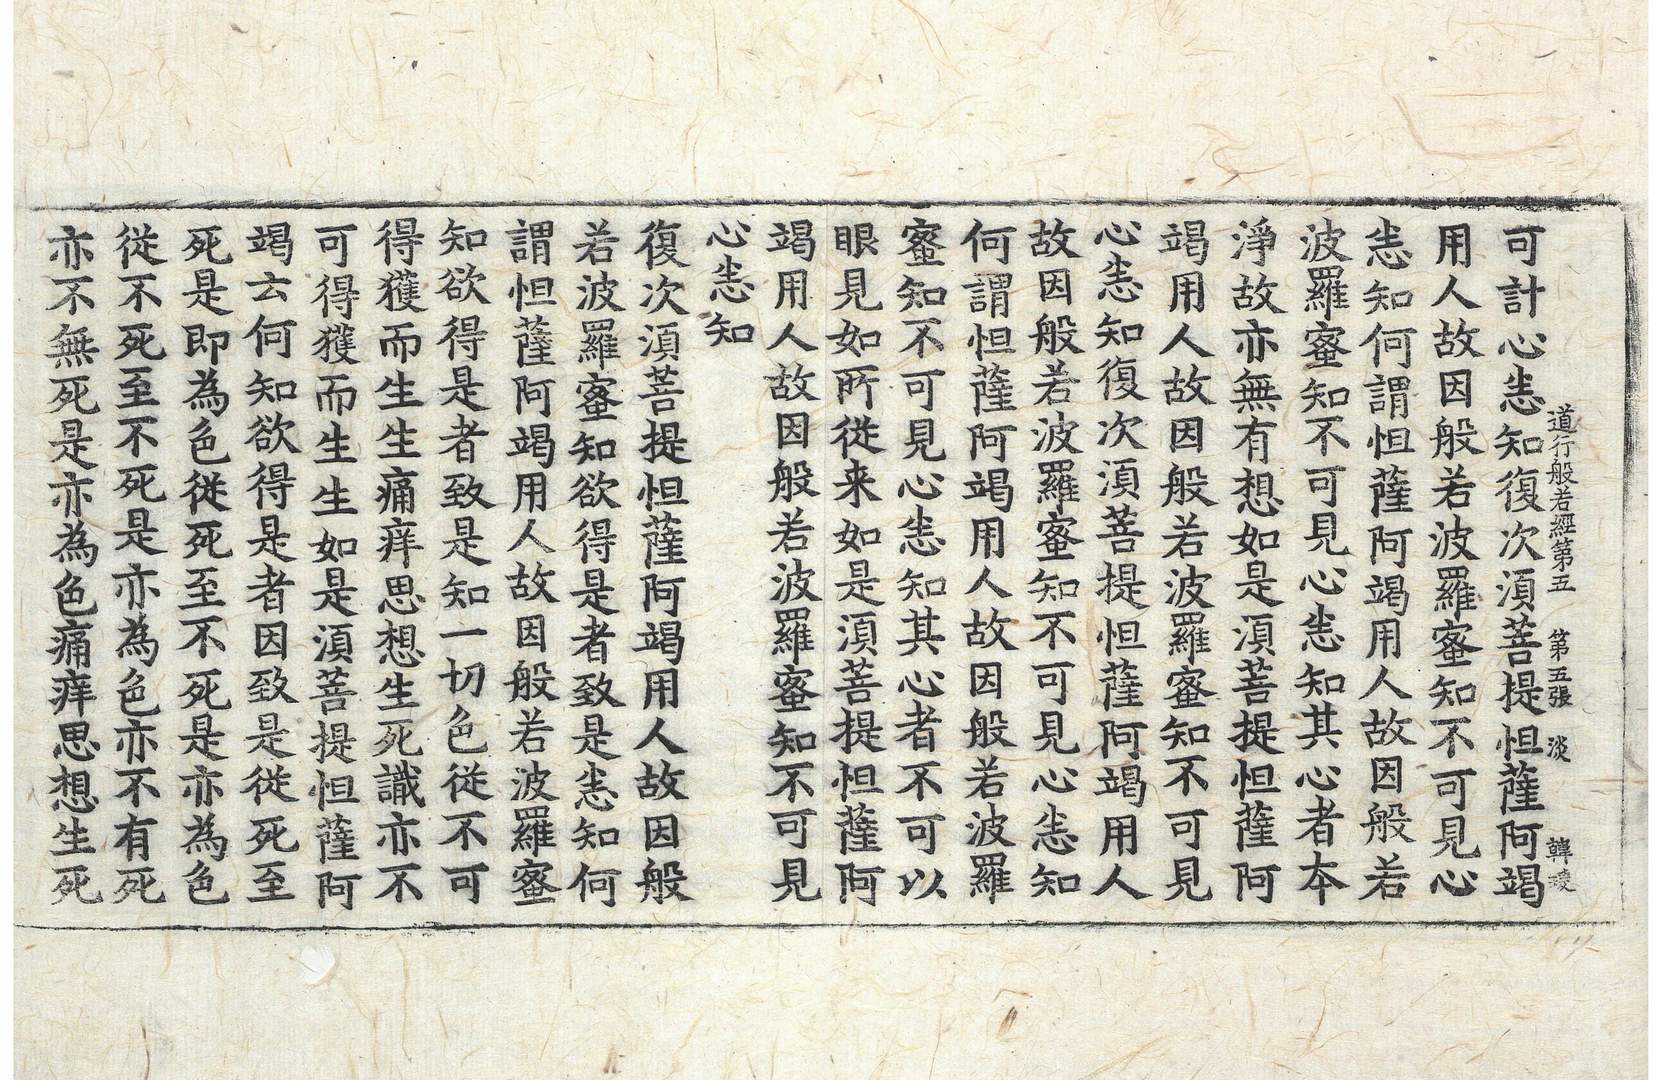 道行般若經第五 第五張 淡 韓
可計心悉知復次湏菩提怛薩阿竭
用人故因般若波羅蜜知不可見心
悉知何謂怛薩阿竭用人故因般若
波羅蜜知不可見心悉知其心者本
淨故亦無有想如是湏菩提怛薩阿
竭用人故因般若波羅蜜知不可見
心悉知復次湏菩提怛薩阿竭用人
故因般若波羅蜜知不可見心悉知
何謂怛薩阿竭用人故因般若波羅
蜜知不可見心悉知其心者不可以
眼見如所從来如是湏菩提怛薩阿
竭用人故因般若波羅蜜知不可見
心悉知
復次湏菩提怛薩阿竭用人故因般
若波羅蜜知欲得是者致是悉知何
謂怛薩阿竭用人故因般若波羅蜜
知欲得是者致是知一切色從不可
得獲而生生痛痒思想生死識亦不
可得獲而生生如是湏菩提怛薩阿
竭云何知欲得是者因致是從死至
死是即為色從死至不死是亦為色
從不死至不死是亦為色亦不有死
亦不無死是亦為色痛痒思想生死